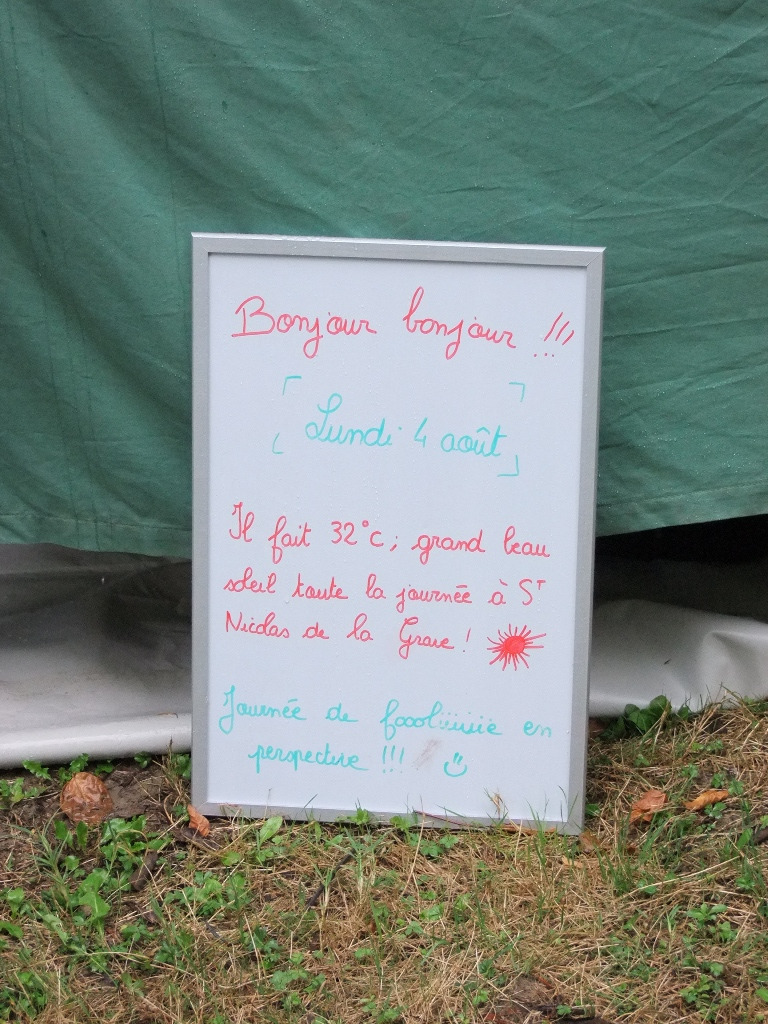 Bonjour bonjour !!!
Lundi 4 août
Il fait 32°c ; grand beau
soleil toute la journée à Sᵀ
Nicolas de la Grave !
Journée de foooliiiiiiie en
perspective !!!